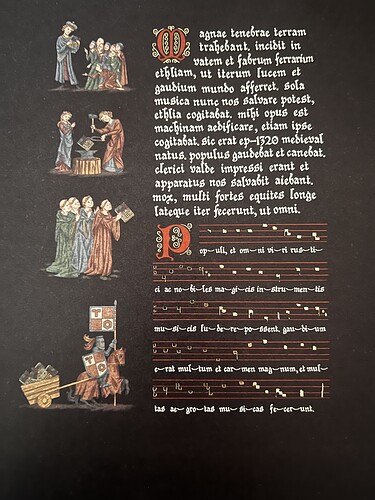 Magnae tenebrae terram
trahebant, incidit in
vatem et fabrum ferrarium
ethliam, ut iterum lucem et
gaudium mundo afferret. sola
musica nunc nos salvare potest,
ethlia cogitabat. mihi opus est
machinam aedificare, etiam ipse
cogitabat. sic erat ep–1320 medieval
natus. populus gaudebat et canebat.
clerici valde impressi erant et
apparatus nos salvabit aiebant.
mox, multi fortes equites longe
lateque iter fecerunt, ut omni.
Pop-uli, et om-ni vi-ri rus-ti-
ci ac no-bi-les ma-gi-cis in-stru-men-tis
mu-si-cis lu-de-re-po-ssent. gau-di-um
e-rat mul-tum et car-men mag-num, et mul-
tas ae-gro-tas mu-si-cas fe-cer-unt.